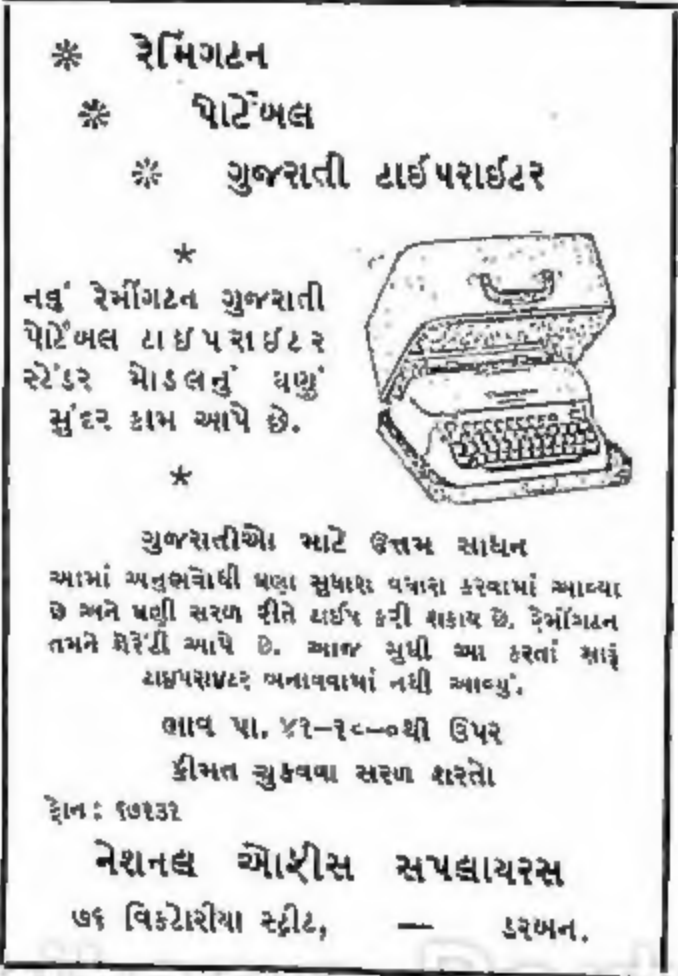 રેમિંગટન
પોર્ટેબલ
ગુજરાતી ટાઈપરાઈટર
નવું રેમીંગટન ગુજરાતી
પોર્ટેબલ ટાઈપરાઈટર
સ્ટેંડર મોડલનું ઘણું
સુંદર કામ આપે છે.
ગુજરાતીઓ માટે ઉત્તમ સાધન
આમાં અનુભવોથી ઘણા સુધારા વધારા કરવામાં આવ્યા
છે અને ઘણી સરળ રીતે ટાઈપ કરી શકાય છે. રેમીંગટન
તમને ગેરેંટી આપે છે. આજ સુધી આ કરતાં સારૂં
ટાઇપરાઇટર બનાવવામાં નથી આવ્યું.
ભાવ પા. ૪૨-૧૮-૦થી ઉપર
કીમત ચુકવવા સરળ શરતો
ફોન: ૬૭૨૩૨
નેશનલ ઓફીસ સપલાયરસ
૭૬ વિક્ટોરીયા સ્ટ્રીટ, — ડરબન.